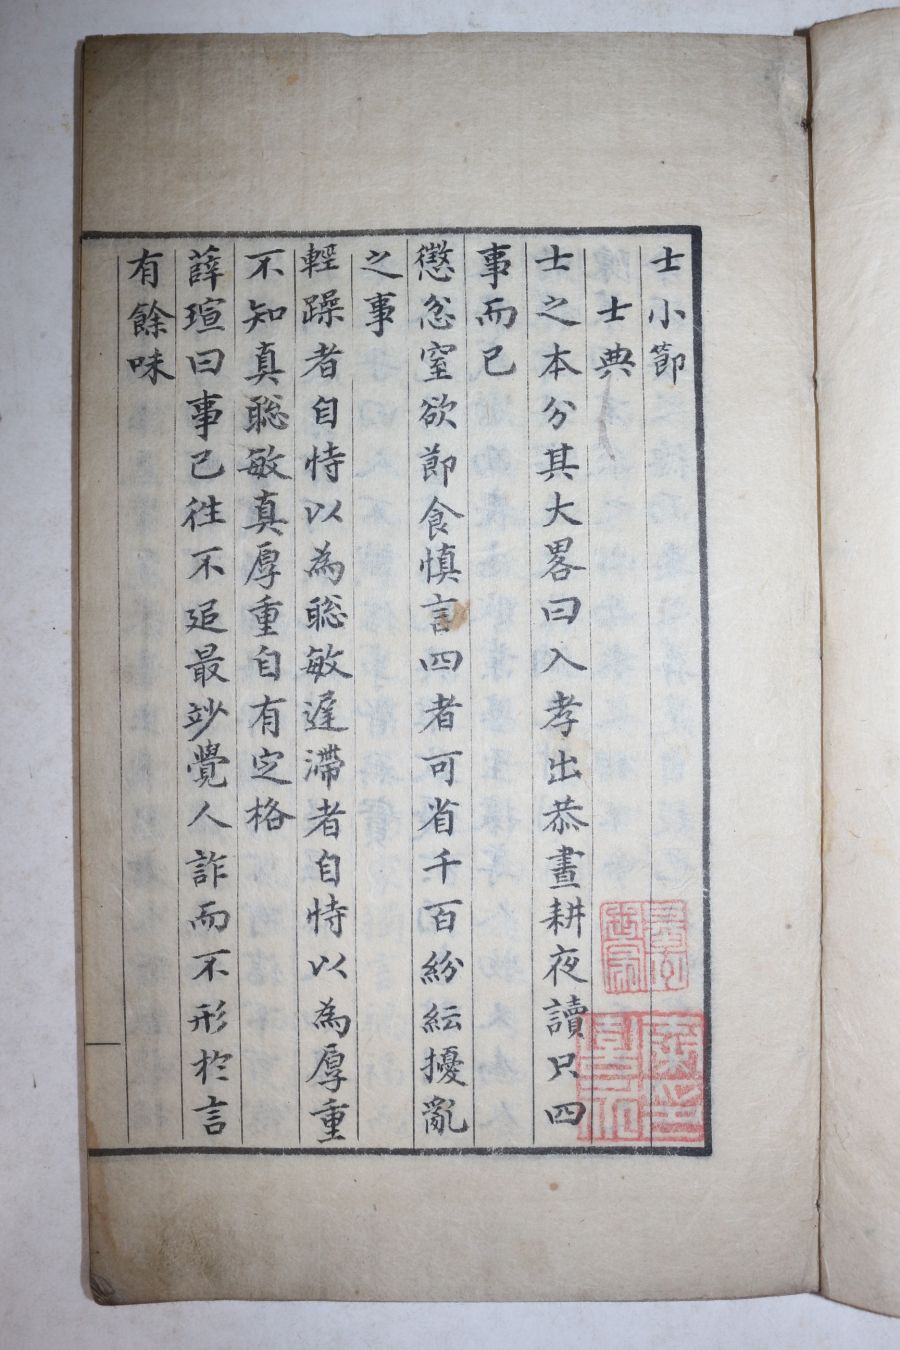 士小節
士典
士之本分其大畧曰入孝出恭晝耕夜讀只四
事而已
懲忿窒欲節食慎言四者可省千百紛紜擾亂
之事
輕躁者自恃以為聡敏遅滯者自恃以為厚重
不知真聡敏真厚重自有定格
薛瑄曰事已往不追最妙覺人詐而不形於言
有餘味